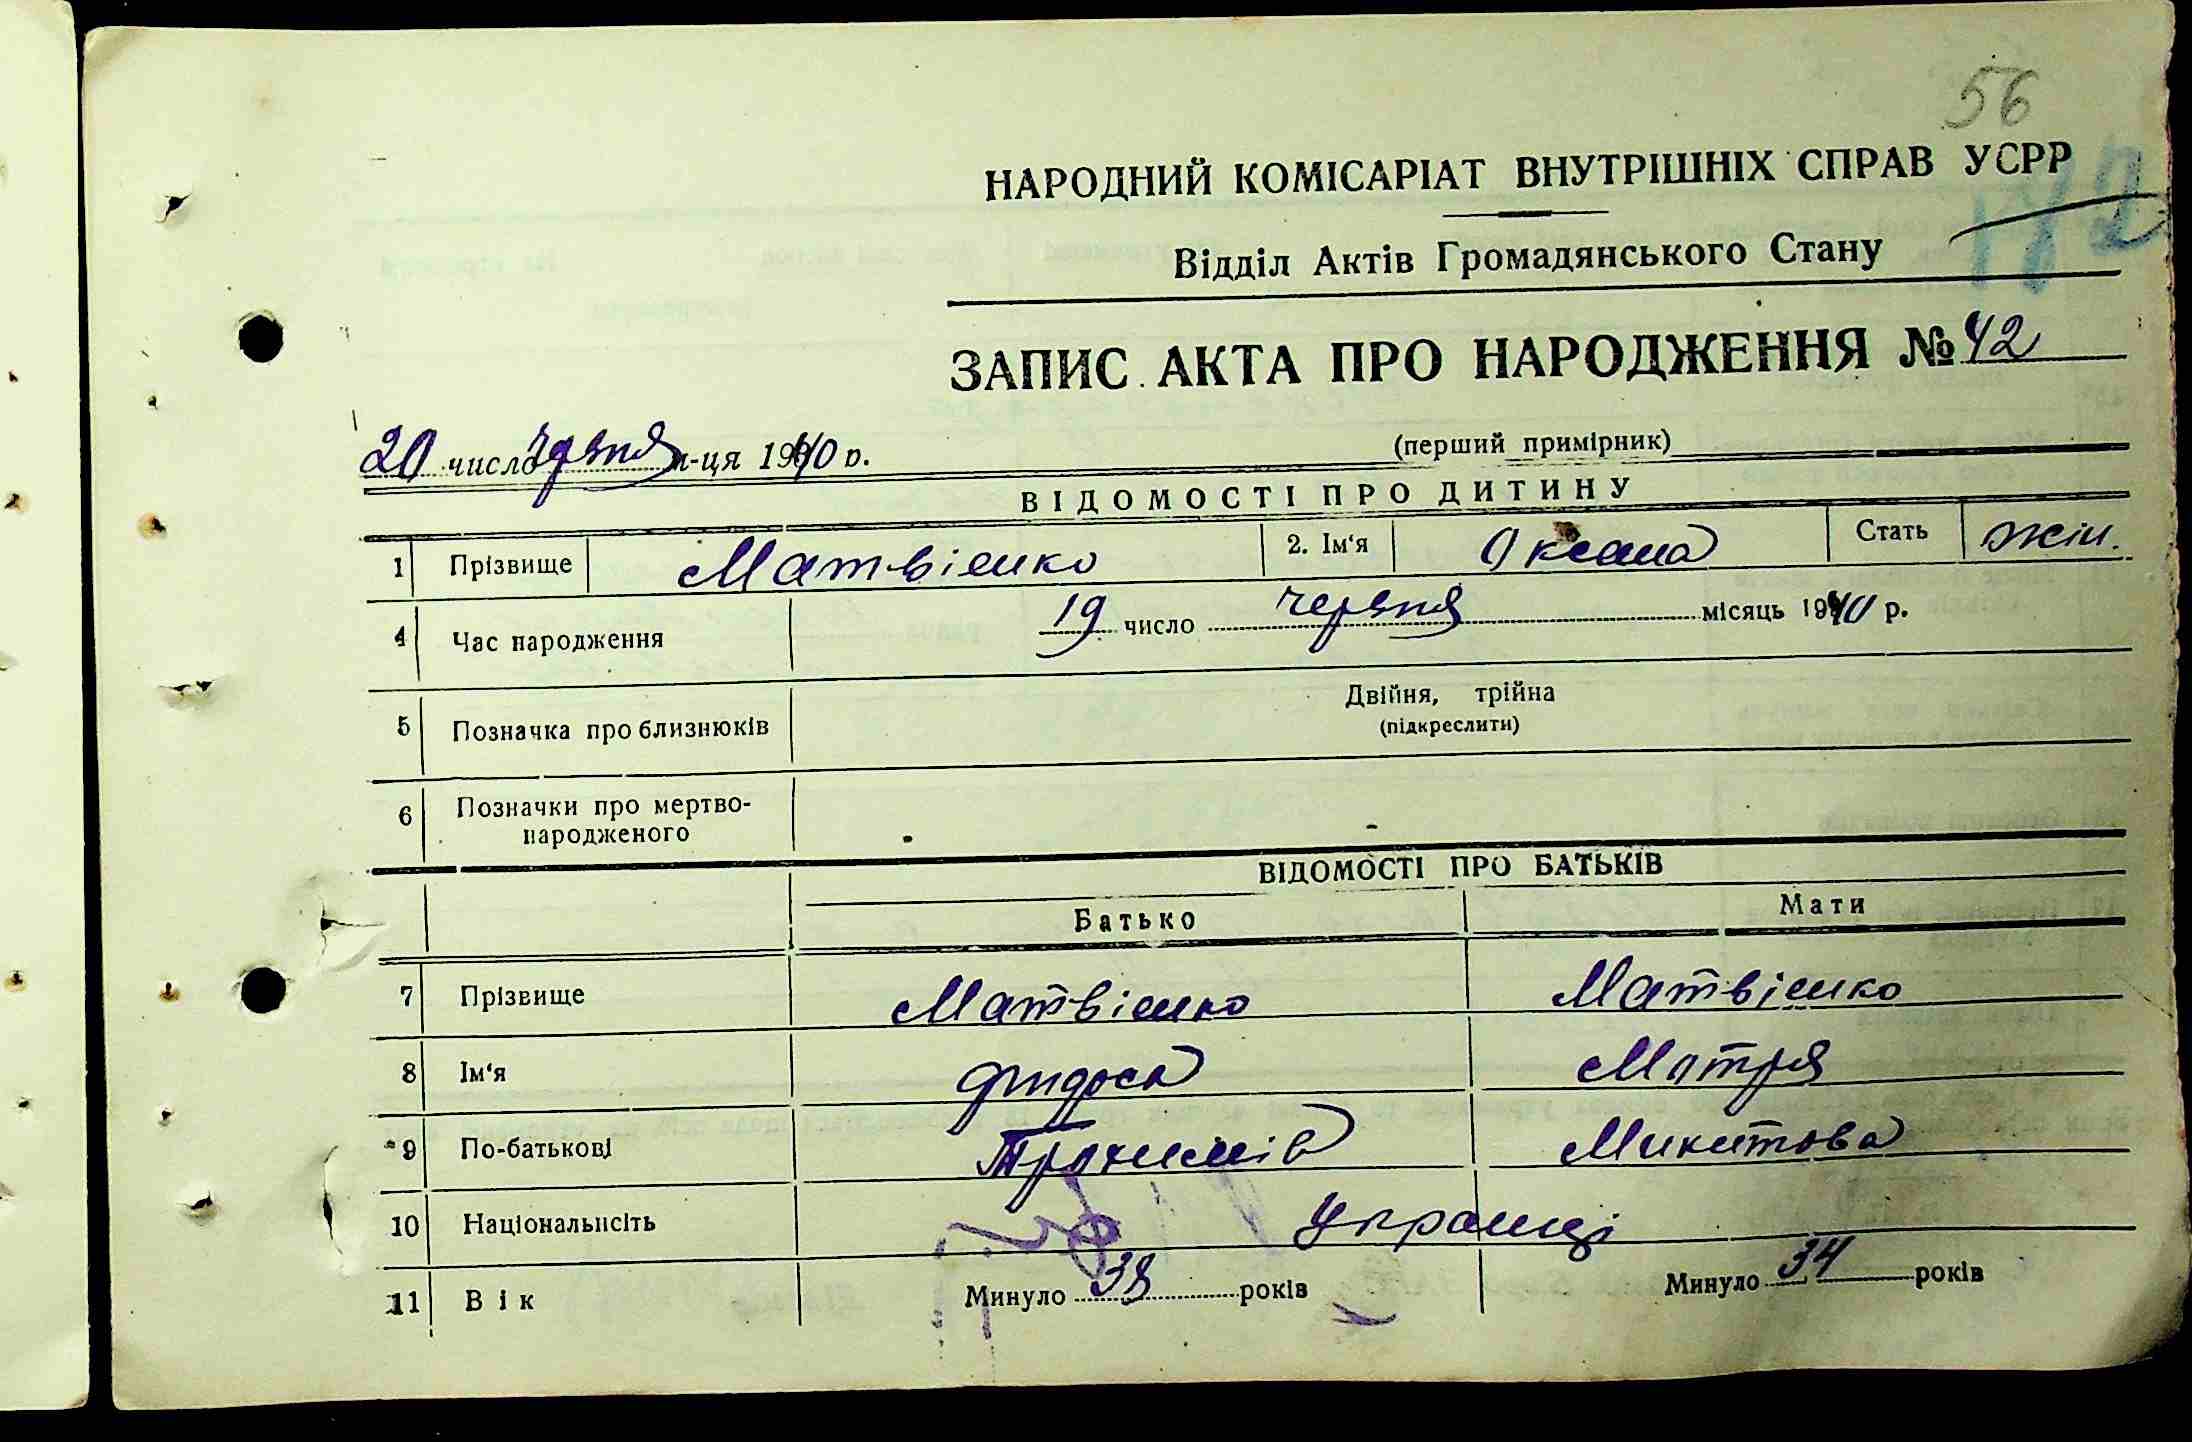 56
НАРОДНИЙ КОМІСАРІАТ ВНУТРІШНІХ СПРАВ УСРР
Відділ Актів Громадянського Стану
ЗАПИС АКТА ПРО НАРОДЖЕННЯ № 42
20 число червня м-ця 1940 р. (перший примірник)
ВІДОМОСТІ ПРО ДИТИНУ
1 Прізвище Матвієнко 2. Ім'я Оксана Стать жін.
4 Час народження 19 число червня місяць 1940 р.
5 Позначка про близнюків Двійня, трійна
(підкреслити)
6 Позначки про мертво-
народженого
ВІДОМОСТІ ПРО БАТЬКІВ
Батько Мати
7 Прізвище Матвієнко Матвієнко
8 Ім'я Матря
9 По-батькові Трохимів Микитова
10 Національність Українці
11 Вік Минуло 38 років Минуло 34 років